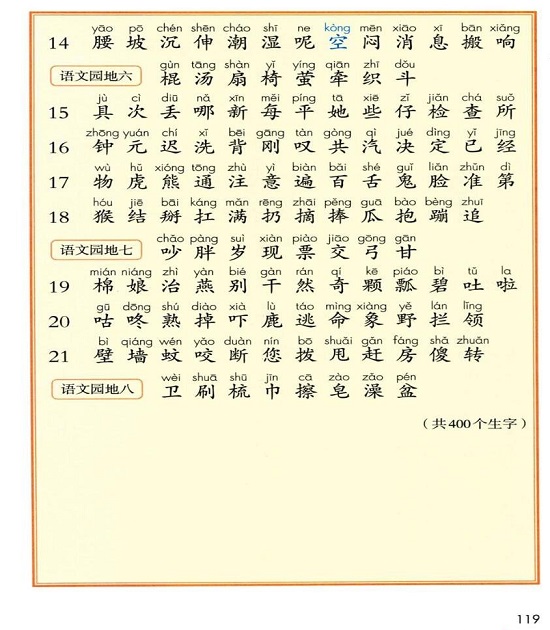 yāo pō chén shēn cháo shī ne kòng mēn xiāo xī bān xiǎng
14 腰 坡 沉 伸 潮 湿 呢 空 闷 消 息 搬 响
gùn tāng shàn yǐ yíng qiān zhī dǒu
语文园地六 棍 汤 扇 椅 萤 牵 织 斗
jù cì diū nǎ xīn měi píng tā xiē zǐ jiǎn chá suǒ
15 具 次 丢 哪 新 每 平 她 些 仔 检 查 所
zhōng yuán chí xǐ bēi gāng tàn gòng qì jué dìng yǐ jīng
16 钟 元 迟 洗 背 刚 叹 共 汽 决 定 已 经
wù hǔ xióng tōng zhù yì biàn bǎi shé guǐ liǎn zhǔn dì
17 物 虎 熊 通 注 意 遍 百 舌 鬼 脸 准 第
hóu jiē bāi káng mǎn rēng zhāi pěng guā bào bèng zhuī
18 猴 结 掰 扛 满 扔 摘 捧 瓜 抱 蹦 追
chǎo pàng suì xiàn piào jiāo gōng gān
语文园地七 吵 胖 岁 现 票 交 弓 甘
mián niáng zhì yàn bié gàn rán qí kē piáo bì tǔ la
19 棉 娘 治 燕 别 干 然 奇 颗 瓢 碧 吐 啦
gū dōng shú diào xià lù táo mìng xiàng yě lán lǐng
20 咕 咚 熟 掉 吓 鹿 逃 命 象 野 拦 领
bì qiáng wén yǎo duàn nín bō shuǎi gǎn fáng shǎ zhuǎn
21 壁 墙 蚊 咬 断 您 拨 甩 赶 房 傻 转
wèi shuā shū jīn cā zào zǎo pén
语文园地八 卫 刷 梳 巾 擦 皂 澡 盆
（共400个生字）
119